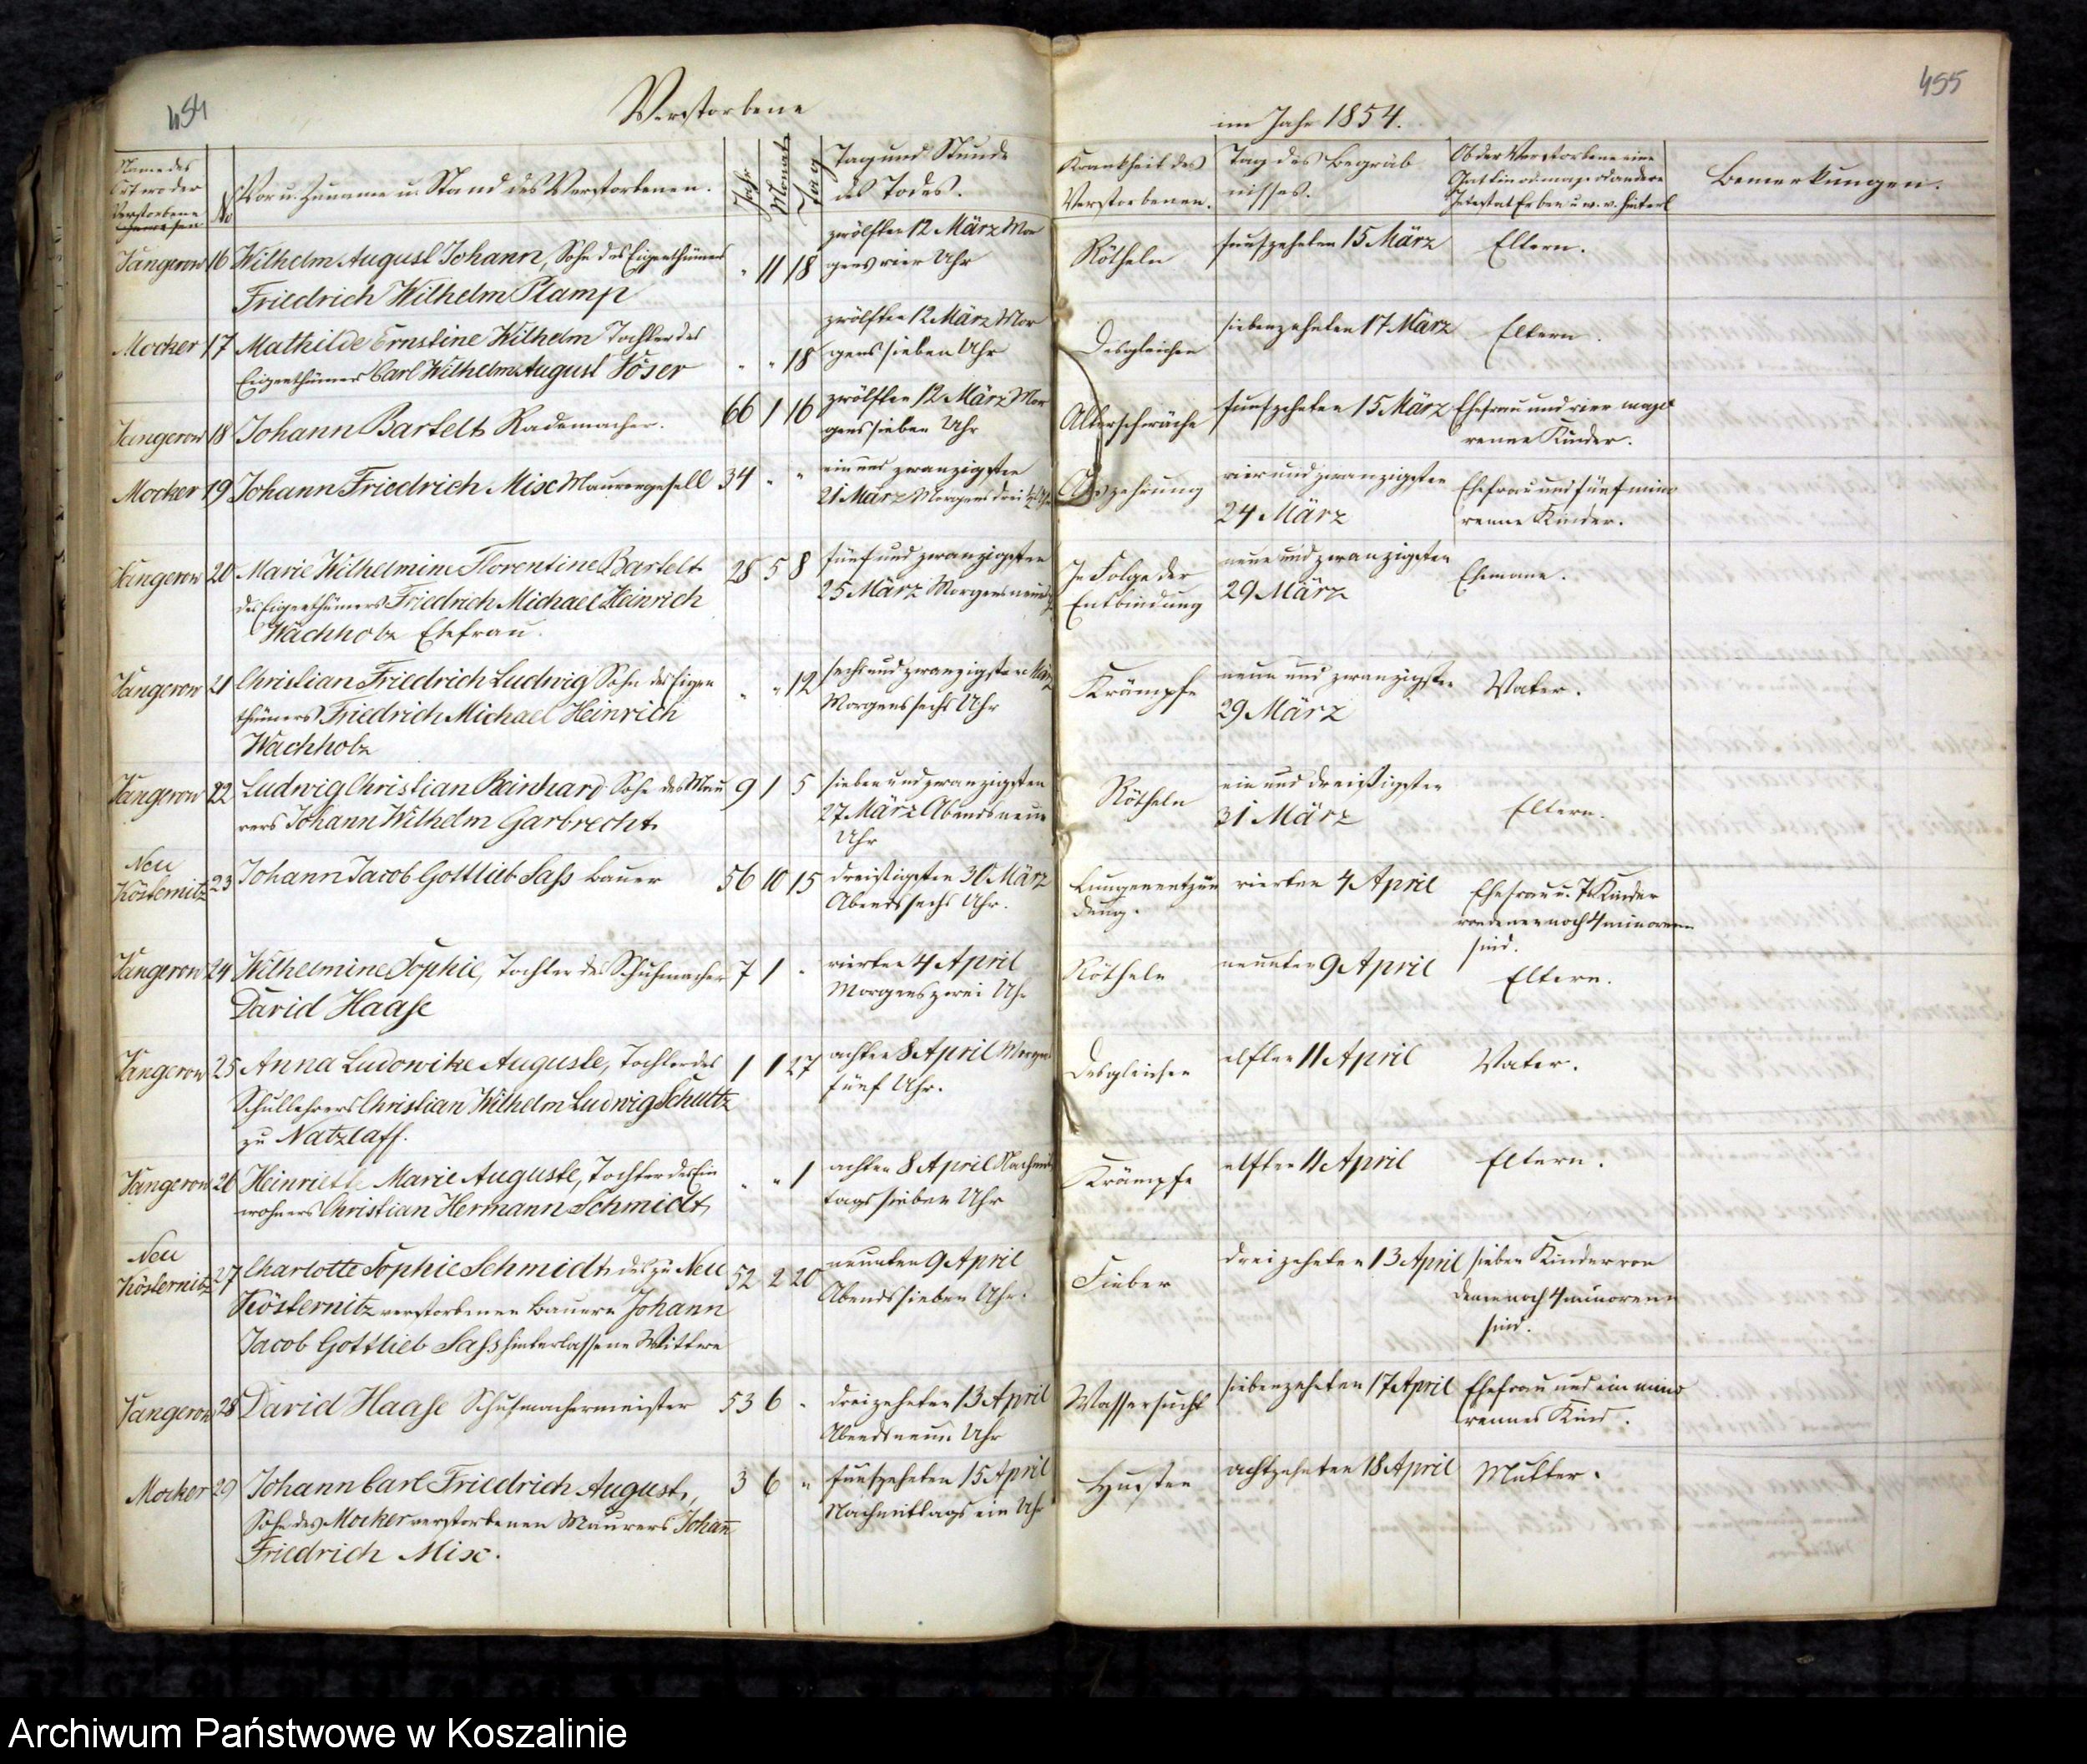 454
Verstorbene
Name des
Ort wo der
Verstorbene
gewesen
No
Vor u. Zuname u. Stand des Verstorbenen.
Jahr
Monate
Tag
Tag und Stunde
des Todes.
Vangerow 16 Wilhelm August Johann, Sohn des Eigenthümers
Friedrich Wilhelm Plamp
" 11 18
zwölften 12 März Mor
gens vier Uhr
Mocker 17 Mathilde Ernstine Wilhelm Tochter des
Eigenthümers Carl Wilhelm August Vöser
" " 18
zwölften 12 März Mor
gens sieben Uhr
Vangerow 18 Johann Bartelt Rademacher.
66 1 16
zwölften 12 März Mor
gens sieben Uhr
Mocker 19 Johann Friedrich Mix Maurergesell
34 " "
ein und zwanzigsten
21 März Morgens drei ½ Uhr
Vangerow 20 Marie Wilhelmine Florentine Bartelt
des Eigenthümers Friedrich Michael Heinrich
Wachholz Ehefrau.
28 5 8
fünf und zwanzigsten
25 März Morgens neun
Vangerow 21 Christian Friedrich Ludwig Sohn des Eigen
thümers Friedrich Michael Heinrich
Wachholz
" " 12
sechs und zwanzigsten März
Morgens sechs Uhr
Vangerow 22 Ludwig Christian Reinhard Sohn des Mau
rers Johann Wilhelm Garbrecht
9 1 5
sieben und zwanzigsten
27 März Abends neun
Uhr
Neu
Kösternitz 23 Johann Jacob Gottlieb Sass Bauer
56 10 15
dreißigsten 30 März
Abends sechs Uhr.
Vangerow 24 Wilhelmine Sophie, Tochter des Schuhmacher
David Haase
7 1 "
vierten 4 April
Morgens zwei Uhr
Vangerow 25 Anna Ludowike Auguste, Tochter des
Schullehrers Christian Wilhelm Ludwig Schultz
zu Natzlaff.
1 1 27
achten 8 April Morgens
fünf Uhr.
Vangerow 26 Heinriette Marie Auguste, Tochter des Ein
wohners Christian Hermann Schmidt
" " 1
achten 8 April Nachmit
tags sieben Uhr
Neu
Kösternitz 27 Charlotte Sophie Schmidt, des zu Neu
Kösternitz verstorbenen Bauern Johann
Jacob Gottlieb Sass hinterlassene Wittwe
52 2 20
neunten 9 April
Abends sieben Uhr.
Vangerow 28 David Haase Schuhmachermeister
53 6 "
dreizehnten 13 April
Abends neun Uhr
Mocker 29 Johann Carl Friedrich August,
Sohn des Mocker verstorbenen Maurers Johann
Friedrich Mix.
3 6 "
fünfzehnten 15 April
Nachmittags ein Uhr
455
im Jahr 1854.
Krankheit des
Verstorbenen.
Tag des Begräb
nisses.
Ob der Verstorbene eine
Gattin od. maj. od. andere
Intestat Erben u. w. v. hinterl
Bemerkungen.
Rötheln
funfzehnten 15 März
Eltern.
Desgleichen
siebenzehnten 17 März
Eltern.
Altersschwäche
funfzehnten 15 März
Ehefrau und vier majo
renne Kinder.
Auszehrung
vier und zwanzigsten
24 März
Ehefrau und fünf mino
renne Kinder.
In Folge der
Entbindung
neun und zwanzigsten
29 März
Ehemann.
Krämpfe
neun und zwanzigsten
29 März
Vater.
Rötheln
ein und dreißigsten
31 März
Eltern.
Lungenentzün
dung.
vierten 4 April
Ehefrau u. 7 Kinder
von denen noch 4 minorenn
sind.
Rötheln
neunten 9 April
Eltern.
Desgleichen
elften 11 April
Vater.
Krämpfe
elften 11 April
Eltern.
Fieber
dreizehnten 13 April
sieben Kinder von
denen noch 4 minorenn
sind.
Wassersucht
siebenzehnten 17 April
Ehefrau und ein mino
rennes Kind.
Husten
achtzehnten 18 April
Mutter.
Archiwum Państwowe w Koszalinie